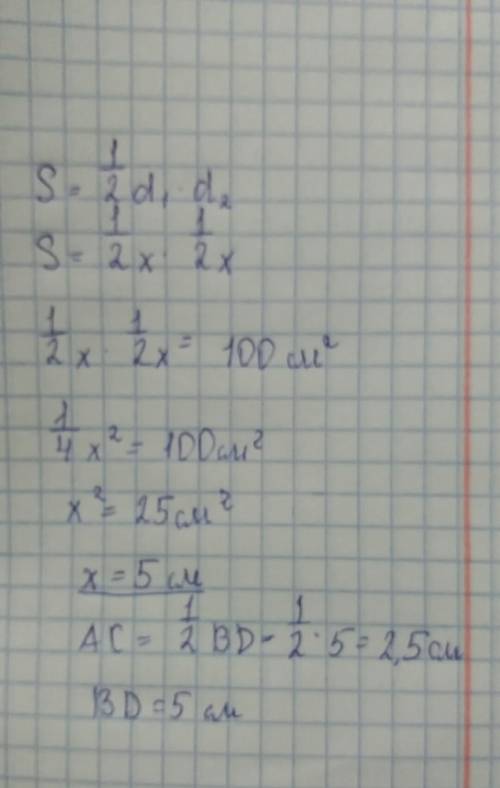 S = 1/2 d₁ · d₂
S = 1/2 x · 1/2 x
1/2 x · 1/2 x = 100 см²
1/4 x² = 100 см²
x² = 25 см²
x = 5 см
AC = 1/2 BD = 1/2 · 5 = 2,5 см
BD = 5 см